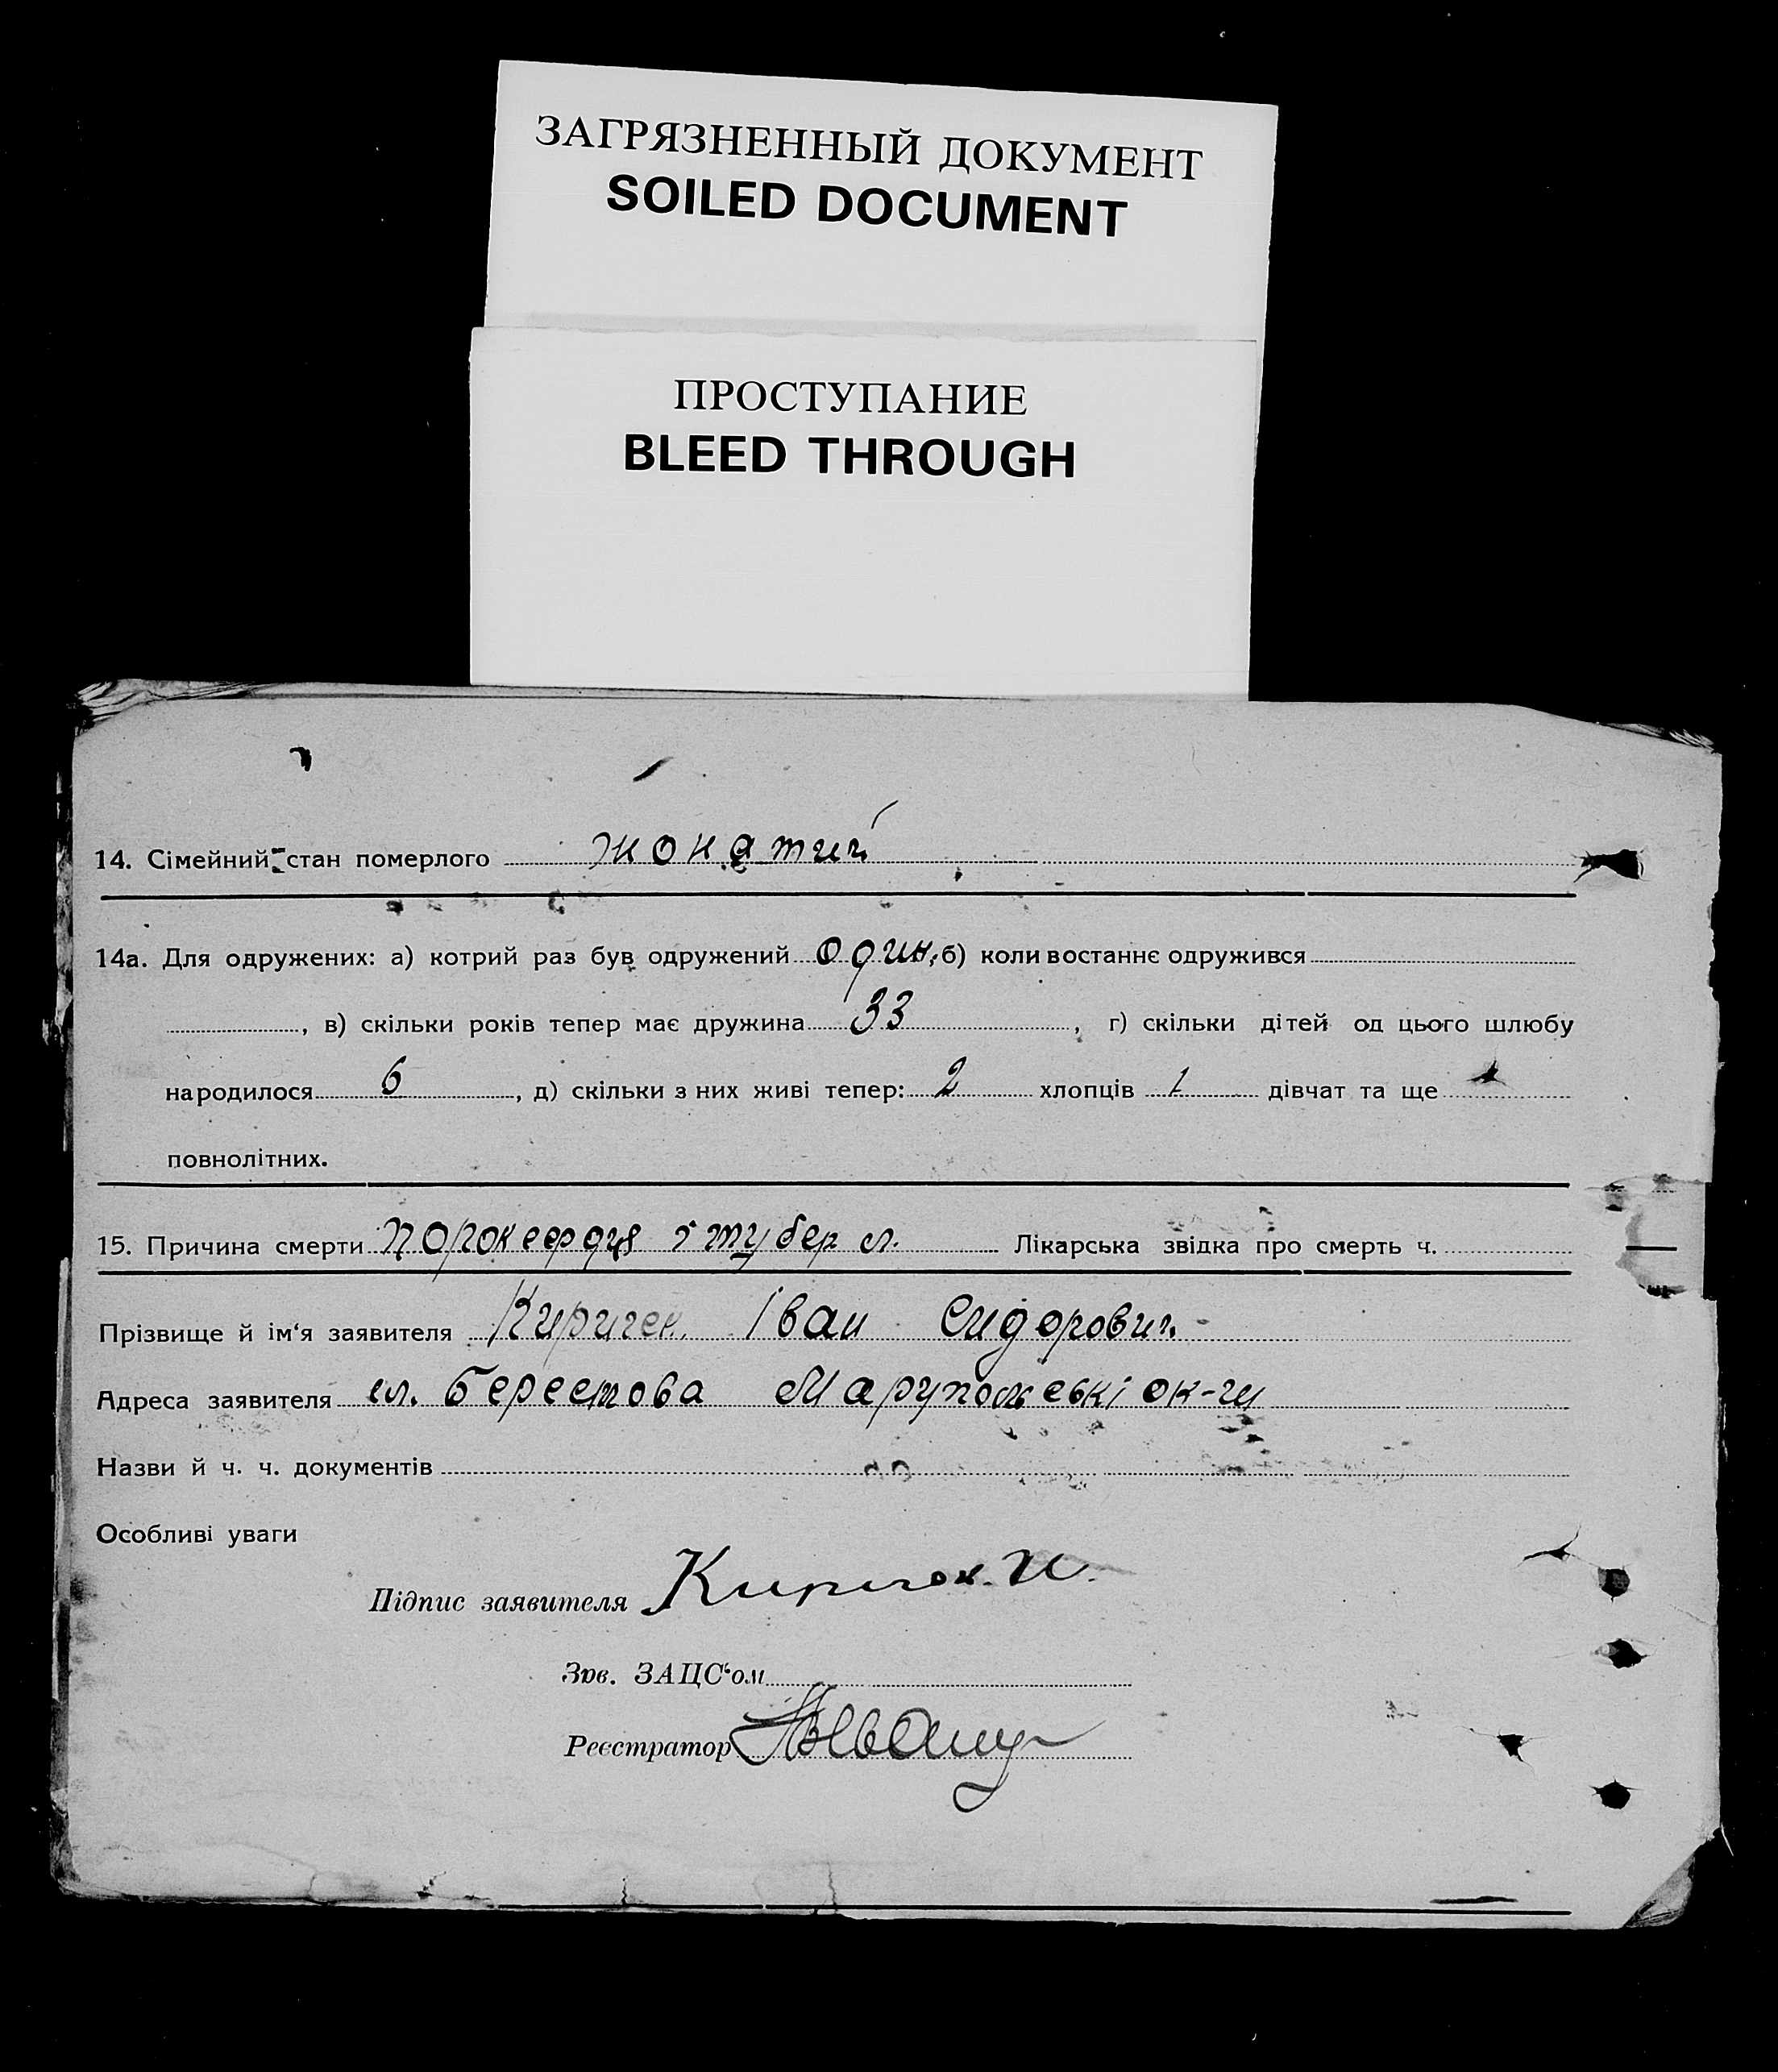 ЗАГРЯЗНЕННЫЙ ДОКУМЕНТ
SOILED DOCUMENT
ПРОСТУПАНИЕ
BLEED THROUGH
14. Сімейний стан померлого жонатий
14а. Для одружених: а) котрий раз був одружений один, б) коли востаннє одружився
, в) скільки років тепер має дружина 33, г) скільки дітей од цього шлюбу
народилося 6, д) скільки з них живі тепер: 2 хлопців 1 дівчат та ще
повнолітних.
15. Причина смерти і тубер л. Лікарська звідка про смерть ч.
Прізвище й ім‘я заявителя Іван Сидорович
Адреса заявителя Берестова ок-ги
Назви й ч. ч. документів
Особливі уваги
Підпис заявителя И.
Зав. ЗАЦС‘ом
Реєстратор